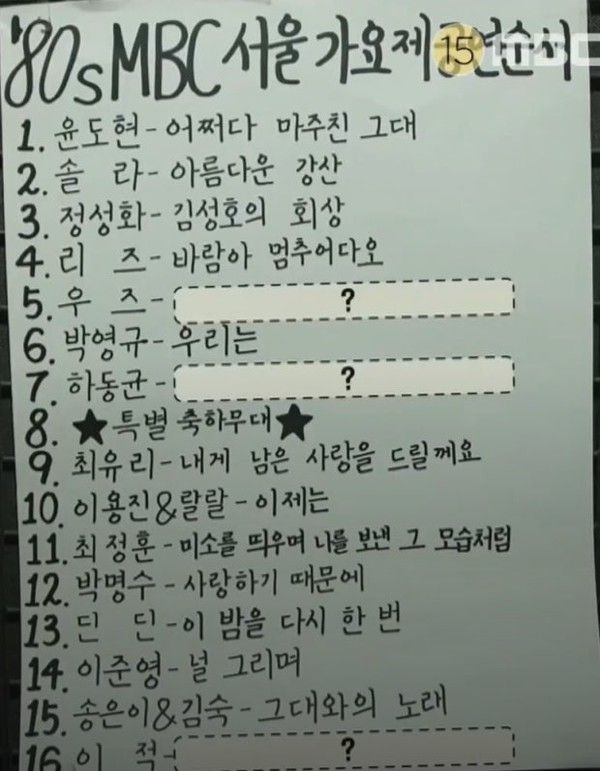 '80s MBC 서울 가요제 공연순서
15 MBC
1. 윤도현 - 어쩌다 마주친 그대
2. 솔 라 - 아름다운 강산
3. 정성화 - 김성호의 회상
4. 리 즈 - 바람아 멈추어다오
5. 우 즈 - ?
6. 박영규 - 우리는
7. 하동균 - ?
8. ★특별 축하무대★
9. 최유리 - 내게 남은 사랑을 드릴께요
10. 이용진&랄랄 - 이제는
11. 최정훈 - 미소를 띄우며 나를 보낸 그 모습처럼
12. 박명수 - 사랑하기 때문에
13. 딘 딘 - 이 밤을 다시 한 번
14. 이준영 - 널 그리며
15. 송은이&김숙 - 그대와의 노래
16. 이 적 - ?